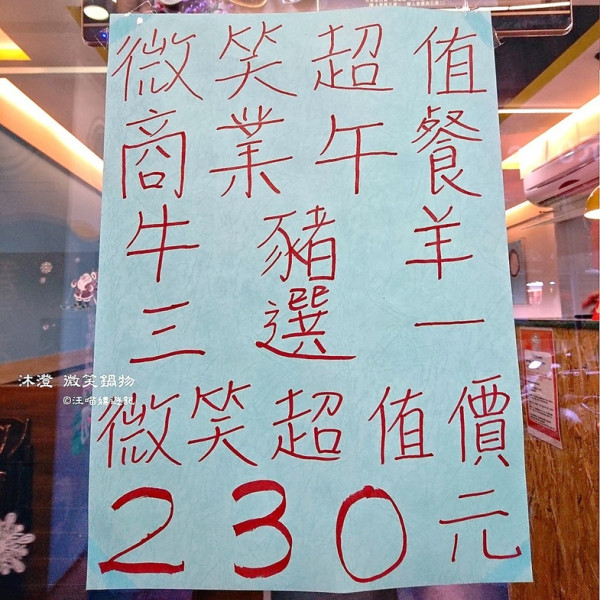 微笑超值
商業午餐
牛豬羊
三選一
微笑超值價
230元
沐澄 微笑鍋物